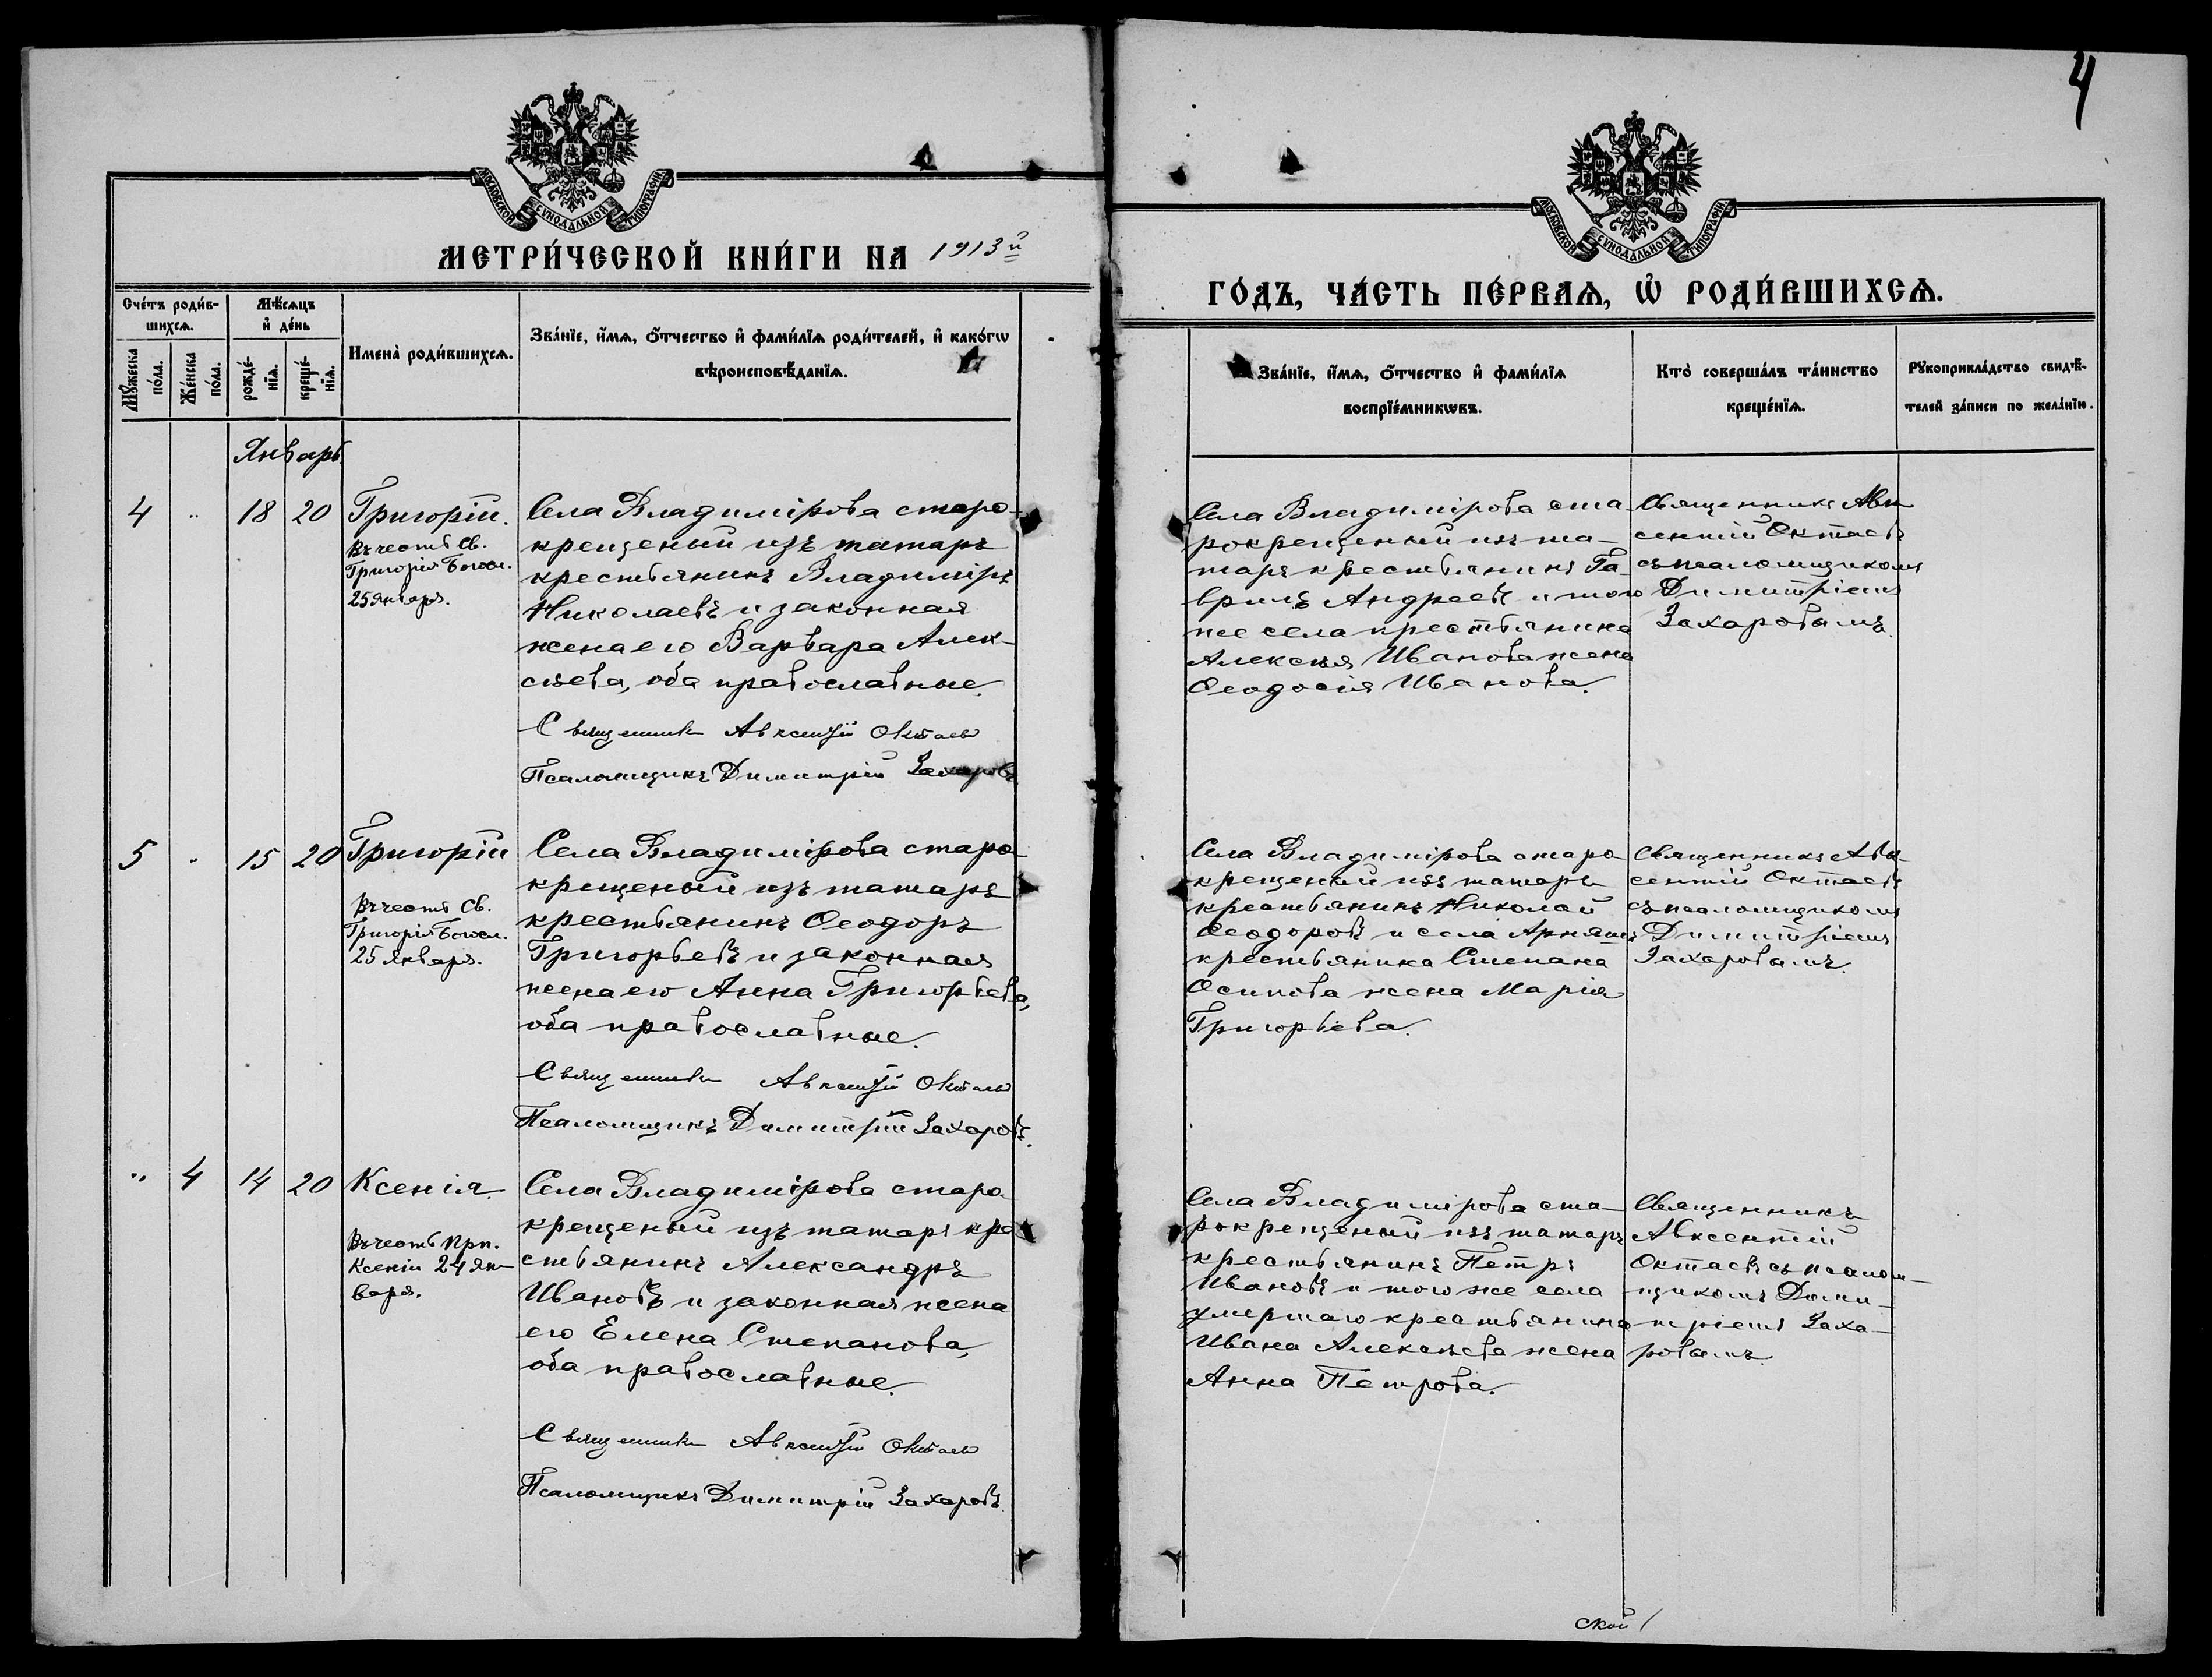 4
МОСКОВСКОЙ СУНОДАЛЬНОЙ ТИПОГРАФІИ
МОСКОВСКОЙ СУНОДАЛЬНОЙ ТИПОГРАФІИ
МЕТРИ́ЧЕСКОЙ КНИ́ГИ НА 1913й
ГО́ДЪ, ЧА́СТЬ ПЕ́РВАѦ, Ѡ҆ РОДИ́ВШИХСѦ.
Сче́тъ роди́в-
шихсѧ.
Мꙋ́жеска
по́ла.
Же́нска
по́ла.
Мѣ́сѧцъ
и҆ де́нь
рожде́-
нїѧ.
креще́-
нїѧ.
Имена̀ роди́вшихсѧ.
Зва́нїе, и҆́мѧ, ѻ҆́тчество и҆ фами́лїѧ роди́телей, и҆ како́гѡ
вѣроисповѣ́данїѧ.
Зва́нїе, и҆́мѧ, ѻ҆́тчество и҆ фами́лїѧ
воспрїе́мникѡвъ.
Кто̀ соверша́лъ та́инство
креще́нїѧ.
Рꙋкоприкла́дство свидѣ́-
телей за́писи по жела́нїю.
Январь.
4 " 18 20
Григорій.
Въ честь Св.
Григорія Богосл.
25 января.
Села Владимірова старо-
крещеный изъ татаръ
крестьянинъ Владиміръ
Николаевъ и законная
жена его Варвара Алек-
сѣева, оба православные.
Священникъ Авксентій Октаевъ
Псаломщикъ Димитрій Захаровъ
Села Владимірова ста-
рокрещеный изъ та-
таръ крестьянинъ Га-
вриилъ Андреевъ и того
же села крестьянина
Алексѣя Иванова жена
Ѳеодосія Иванова.
Священникъ Авк
сентій Октаевъ
съ псаломщикомъ
Димитріемъ
Захаровымъ.
5 " 15 20
Григорій
Въ честь Св.
Григорія Богосл.
25 января.
Села Владимірова старо-
крещеный изъ татаръ
крестьянинъ Ѳеодоръ
Григорьевъ и законная
жена его Анна Григорьева,
оба православные.
Священникъ Авксентій Октаевъ
Псаломщикъ Димитрій Захаровъ.
Села Владимірова старо-
крещеный изъ татаръ
крестьянинъ Николай
Ѳеодоровъ и села
крестьянина Степана
Осипова жена Марія
Григорьева.
Священникъ Авк-
сентій Октаевъ
съ псаломщикомъ
Димитріемъ
Захаровымъ.
" 4 14 20
Ксенія
Въ честь Прп.
Ксеніи 24 ян-
варя.
Села Владимірова старо-
крещеный изъ татаръ кре
стьянинъ Александръ
Ивановъ и законная жена
его Елена Степанова,
оба православные.
Священникъ Авксентій Октаевъ
Псаломщикъ Димитрій Захаровъ.
Села Владимірова ста-
рокрещеный изъ татаръ
крестьянинъ Петръ
Ивановъ и того же села
умершаго крестьянина
Ивана Алексѣева жена
Анна Петрова.
Священникъ
Авксентій
Октаевъ съ псалом-
щикомъ Дими-
тріемъ Заха-
ровымъ.
ской